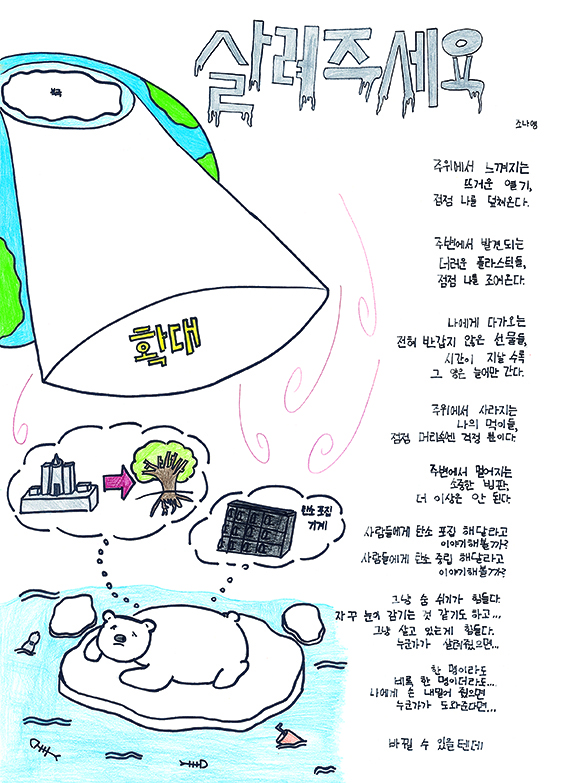 살려주세요
조나영
북극
확대
주위에서 느껴지는
뜨거운 열기,
점점 나를 덮쳐온다.
주변에서 발견되는
더러운 플라스틱들,
점점 나를 조여온다.
나에게 다가오는
전혀 반갑지 않은 선물들,
시간이 지날 수록
그 양은 늘어만 간다.
주위에서 사라지는
나의 먹이들,
점점 머리속엔 걱정 뿐이다.
주변에서 멀어지는
소중한 빙판,
더 이상은 안 된다
탄소 포집
기계
사람들에게 탄소 포집 해달라고
이야기해볼까?
사람들에게 탄소 중립 해달라고
이야기해볼까?
그냥 숨 쉬기가 힘들다.
자꾸 눈이 감기는 것 같기도 하고...
그냥 살고 있는게 힘들다.
누군가가 살려줬으면...
한 명이라도
비록 한 명이더라도...
나에게 손 내밀어 줬으면
누군가가 도와준다면...
바뀔 수 있을텐데